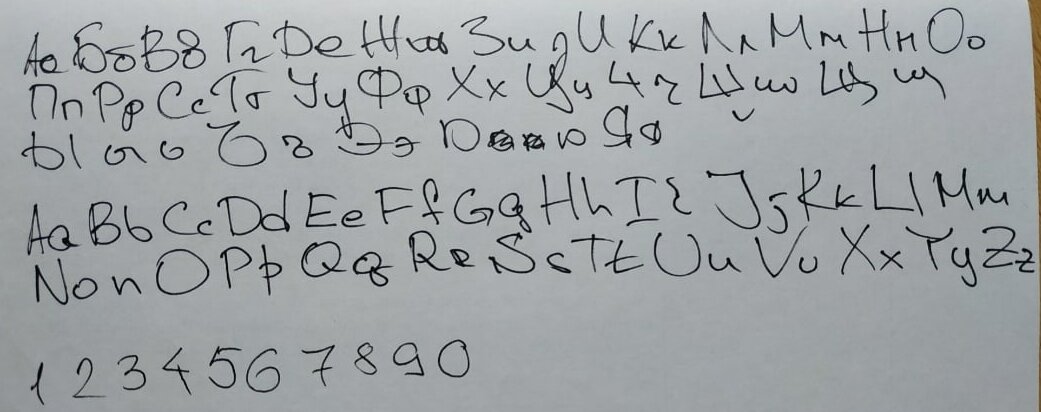 Аа Бб Вв Гг Де Жж Зз И Кк Лл Мм Нн Оо
Пп Рр Сс Тт Уу Фф Хх Цц Чч Шш Щщ
Ы Ээ Юю Яя
Aa Bb Cc Dd Ee Ff Gg Hh Ii Jj Kk Ll Mm
Non O Pp Qq Rr Ss Tt Uu Vv Xx Yy Zz
1 2 3 4 5 6 7 8 9 0